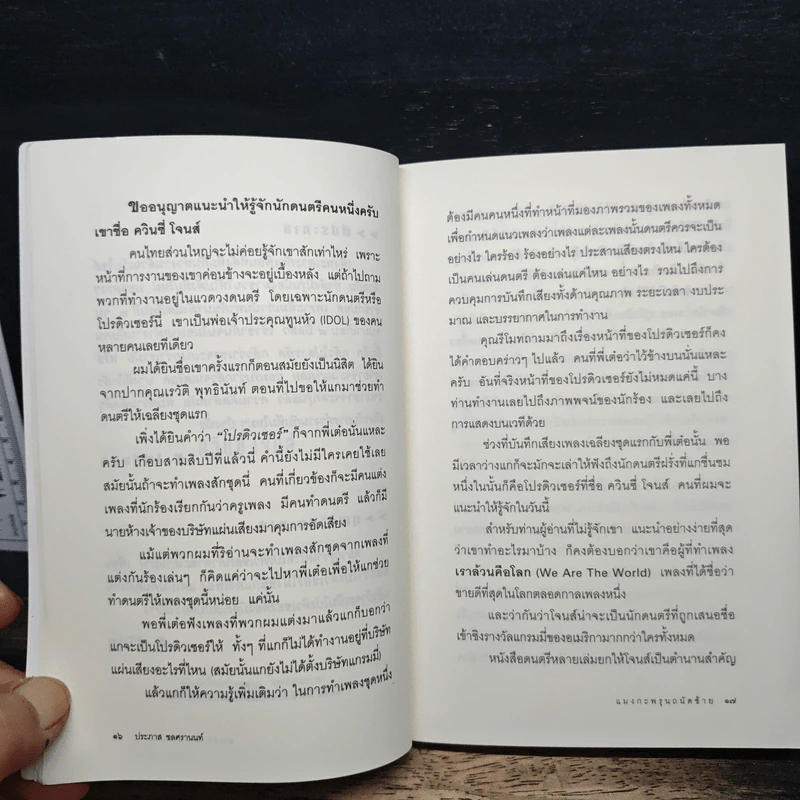 ขออนุญาตแนะนำให้รู้จักนักดนตรีคนหนึ่งครับ
เขาชื่อ ควินซี่ โจนส์
คนไทยส่วนใหญ่จะไม่ค่อยรู้จักเขาสักเท่าไหร่ เพราะ
หน้าที่การงานของเขาค่อนข้างจะอยู่เบื้องหลัง แต่ถ้าไปถาม
พวกที่ทำงานอยู่ในแวดวงดนตรี โดยเฉพาะนักดนตรีหรือ
โปรดิวเซอร์นี่ เขาเป็นพ่อเจ้าประคุณทูนหัว (IDOL) ของคน
หลายคนเลยทีเดียว
ผมได้ยินชื่อเขาครั้งแรกก็ตอนสมัยยังเป็นนิสิต ได้ยิน
จากปากคุณเรวัติ พุทธินันท์ ตอนที่ไปขอให้แกมาช่วยทำ
ดนตรีให้เฉลียงชุดแรก
เพิ่งได้ยินคำว่า “โปรดิวเซอร์” ก็จากพี่เต๋อนั่นแหละ
ครับ เกือบสามสิบปีที่แล้วนี่ คำนี้ยังไม่มีใครเคยใช้เลย
สมัยนั้นถ้าจะทำเพลงสักชุดนี่ คนที่เกี่ยวข้องก็จะมีคนแต่ง
เพลงที่นักร้องเรียกกันว่าครูเพลง มีคนทำดนตรี แล้วก็มี
นายห้างเจ้าของบริษัทแผ่นเสียงมาคุมการอัดเสียง
แม้แต่พวกผมที่ริอ่านจะทำเพลงสักชุดจากเพลงที่
แต่งกันร้องเล่นๆ ก็คิดแค่ว่าจะไปหาพี่เต๋อเพื่อให้แกช่วย
ทำดนตรีให้เพลงชุดนี้หน่อย แค่นั้น
พอพี่เต๋อฟังเพลงที่พวกผมแต่งมาแล้วแกก็บอกว่า
แกจะเป็นโปรดิวเซอร์ให้ ทั้งๆ ที่แกก็ไม่ได้ทำงานอยู่ที่บริษัท
แผ่นเสียงอะไรที่ไหน (สมัยนั้นแกยังไม่ได้ตั้งบริษัทแกรมมี่)
แล้วแกก็ให้ความรู้เพิ่มเติมว่า ในการทำเพลงชุดหนึ่ง
๑๖ ประภาส ชลศรานนท์
ต้องมีคนคนหนึ่งที่ทำหน้าที่มองภาพรวมของเพลงทั้งหมด
เพื่อกำหนดแนวเพลงว่าเพลงแต่ละเพลงนั้นดนตรีควรจะเป็น
อย่างไร ใครร้อง ร้องอย่างไร ประสานเสียงตรงไหน ใครต้อง
เป็นคนเล่นดนตรี ต้องเล่นแค่ไหน อย่างไร รวมไปถึงการ
ควบคุมการบันทึกเสียงทั้งด้านคุณภาพ ระยะเวลา งบประ
มาณ และบรรยากาศในการทำงาน
คุณรีโมทถามมาถึงเรื่องหน้าที่ของโปรดิวเซอร์ก็คง
ได้คำตอบคร่าวๆ ไปแล้ว คนที่พี่เต๋อว่าไว้ข้างบนนั่นแหละ
ครับ อันที่จริงหน้าที่ของโปรดิวเซอร์ยังไม่หมดแค่นี้ บาง
ท่านทำงานเลยไปถึงภาพพจน์ของนักร้อง และเลยไปถึง
การแสดงบนเวทีด้วย
ช่วงที่บันทึกเสียงเพลงเฉลียงชุดแรกกับพี่เต๋อนั้น พอ
มีเวลาว่างแกก็จะมักจะเล่าให้ฟังถึงนักดนตรีฝรั่งที่แกชื่นชม
หนึ่งในนั้นก็คือโปรดิวเซอร์ที่ชื่อ ควินซี่ โจนส์ คนที่ผมจะ
แนะนำให้รู้จักในวันนี้
สำหรับท่านผู้อ่านที่ไม่รู้จักเขา แนะนำอย่างง่ายที่สุด
ว่าเขาทำอะไรมาบ้าง ก็คงต้องบอกว่าเขาคือผู้ที่ทำเพลง
เราล้วนคือโลก (We Are The World) เพลงที่ได้ชื่อว่า
ขายดีที่สุดในโลกตลอดกาลเพลงหนึ่ง
และว่ากันว่าโจนส์น่าจะเป็นนักดนตรีที่ถูกเสนอชื่อ
เข้าชิงรางวัลแกรมมี่ของอเมริกามากกว่าใครทั้งหมด
หนังสือดนตรีหลายเล่มยกให้โจนส์เป็นตำนานสำคัญ
แมงกะพรุนถนัดซ้าย ๑๗